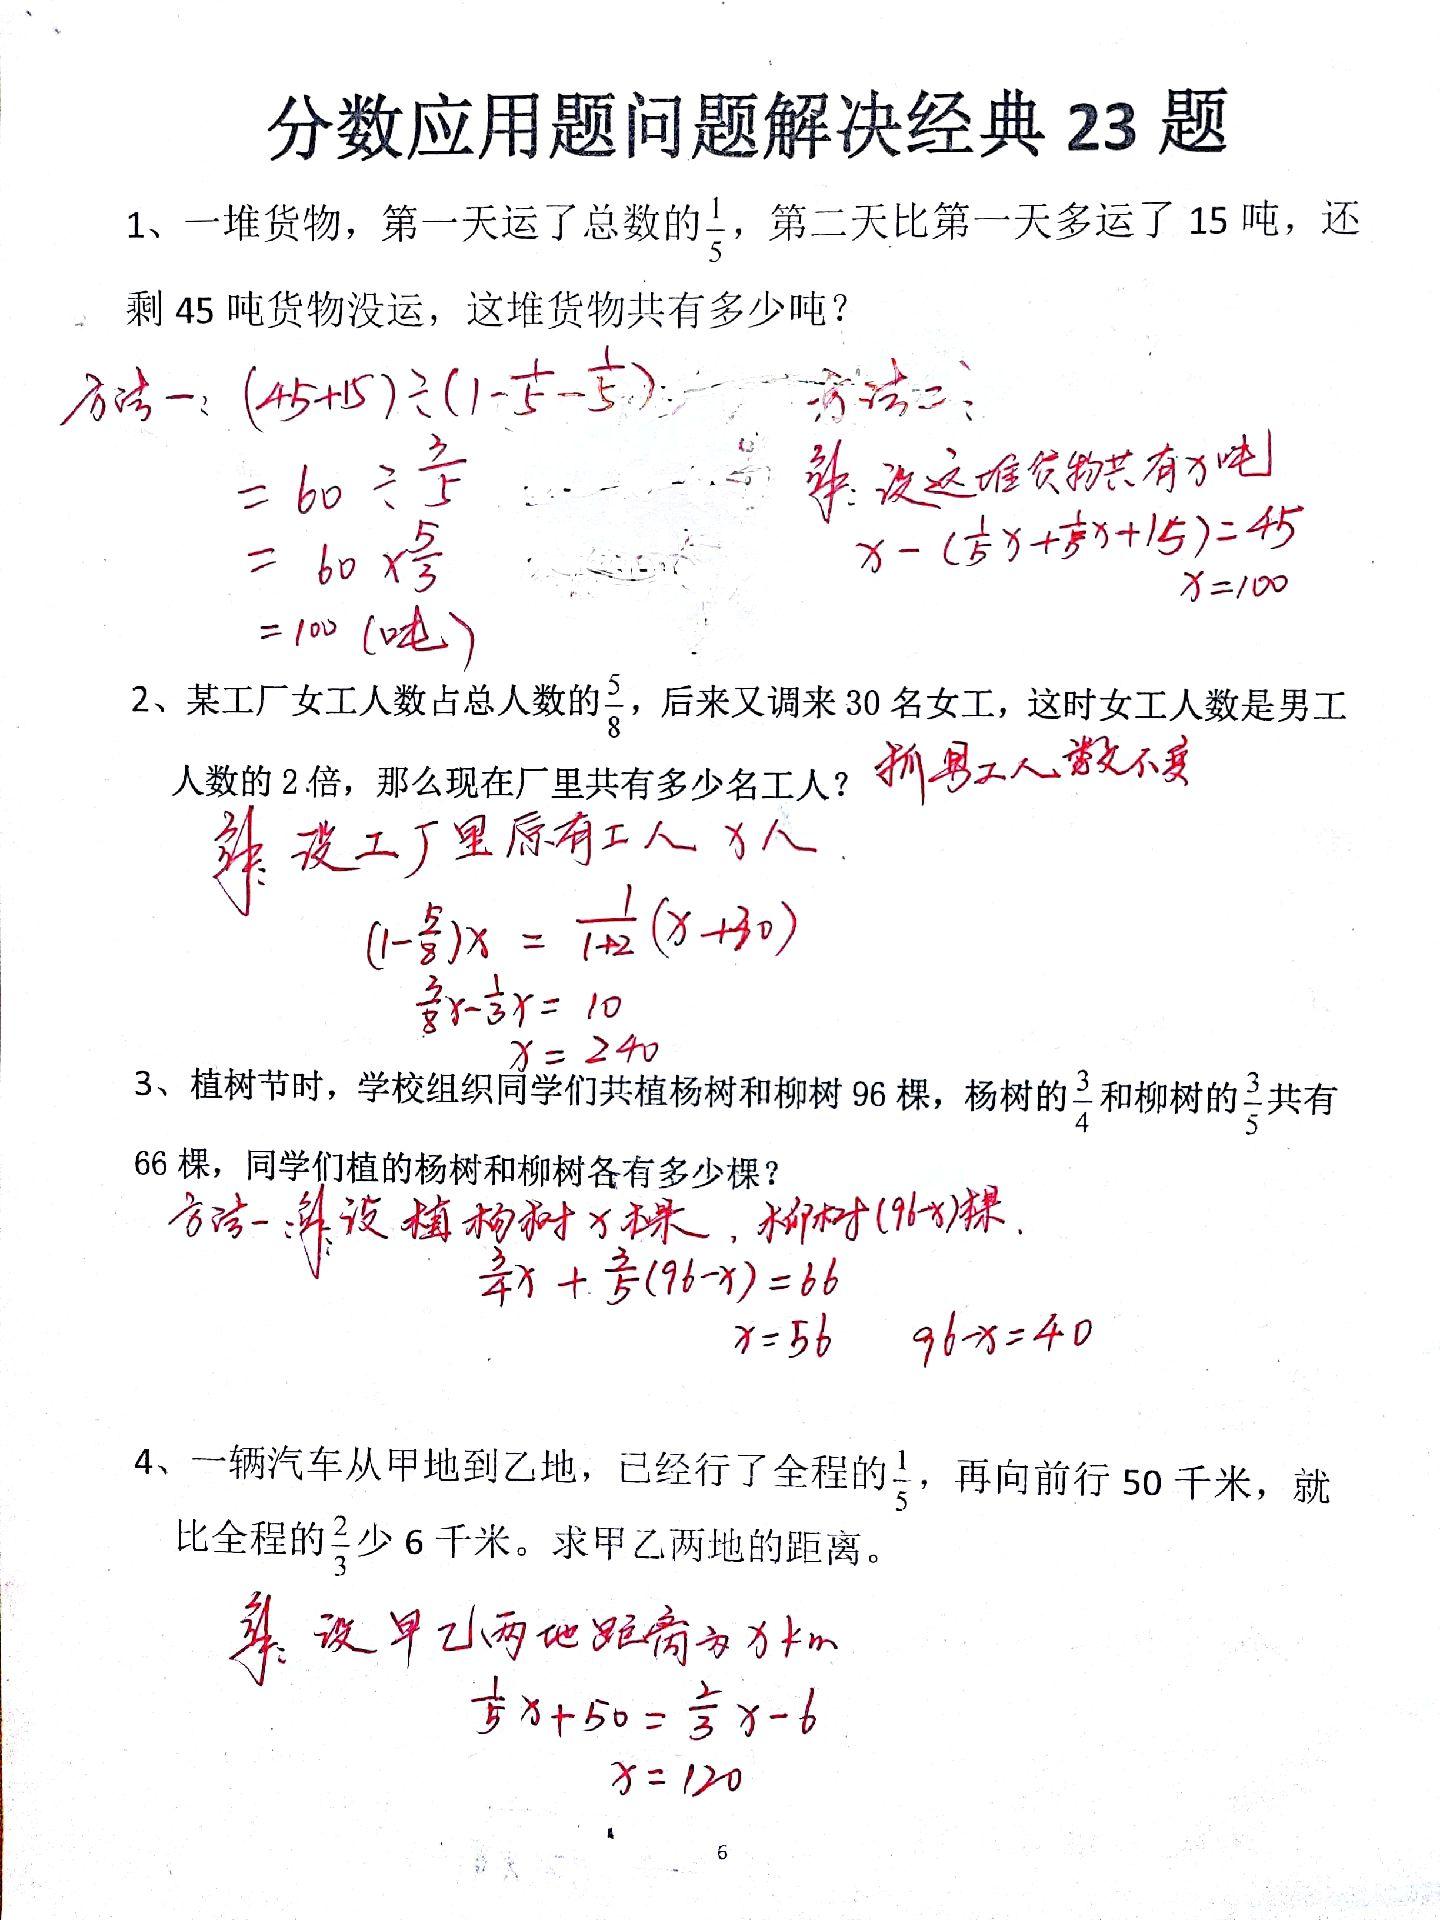 分数应用题问题解决经典 23 题
1、一堆货物，第一天运了总数的1/5，第二天比第一天多运了 15 吨，还
剩 45 吨货物没运，这堆货物共有多少吨？
方法一：(45+15)÷(1-1/5-1/5)
方法二：
=60÷3/5
解：设这堆货物共有x吨
=60×5/3
x-(1/5x+1/5x+15)=45
x=100
=100(吨)
2、某工厂女工人数占总人数的5/8，后来又调来 30 名女工，这时女工人数是男工
人数的 2 倍，那么现在厂里共有多少名工人？ 抓男工人数不变
解：设工厂里原有工人 x人
(1-5/8)x = 1/(1+2)(x+30)
3/8x-1/3x=10
x=240
3、植树节时，学校组织同学们共植杨树和柳树 96 棵，杨树的3/4和柳树的3/5共有
66 棵，同学们植的杨树和柳树各有多少棵？
方法一：解：设植杨树x棵，柳树(96-x)棵.
3/4x+3/5(96-x)=66
x=56 96-x=40
4、一辆汽车从甲地到乙地，已经行了全程的1/5，再向前行 50 千米，就
比全程的2/3少 6 千米。求甲乙两地的距离。
解：设甲乙两地距离为xkm
1/5x+50=2/3x-6
x=120
6